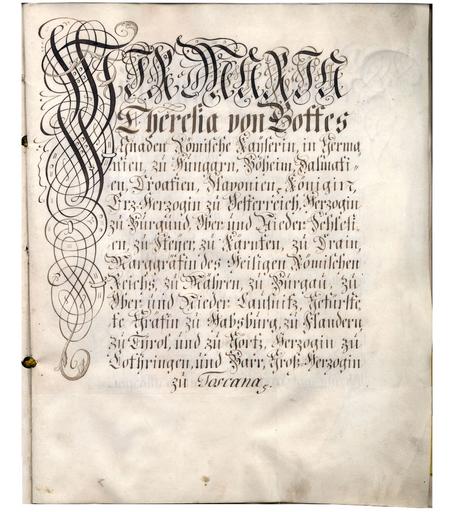 WIR MARIA
Theresia von Gottes
Gnaden Römische Kayserin, in Germa
nien, zu Hungarn, Böheim, Dalmati-
en, Croatien, Slavonien, Königin,
Erz-Herzogin zu Oesterreich, Herzogin
zu Burgund, Ober- und Nieder-Schlesi-
en, zu Steyer, zu Kärnten, zu Crain,
Marggräfin des Heiligen Römischen
Reichs, zu Mähren, zu Burgau, zu
Ober- und Nieder-Lausnitz, Gefürste-
te Gräfin zu Habsburg, zu Flandern
zu Tirol, und zu Görtz, Herzogin zu
Lothringen, und Baar, Groß-Herzogin
zu Toscana,